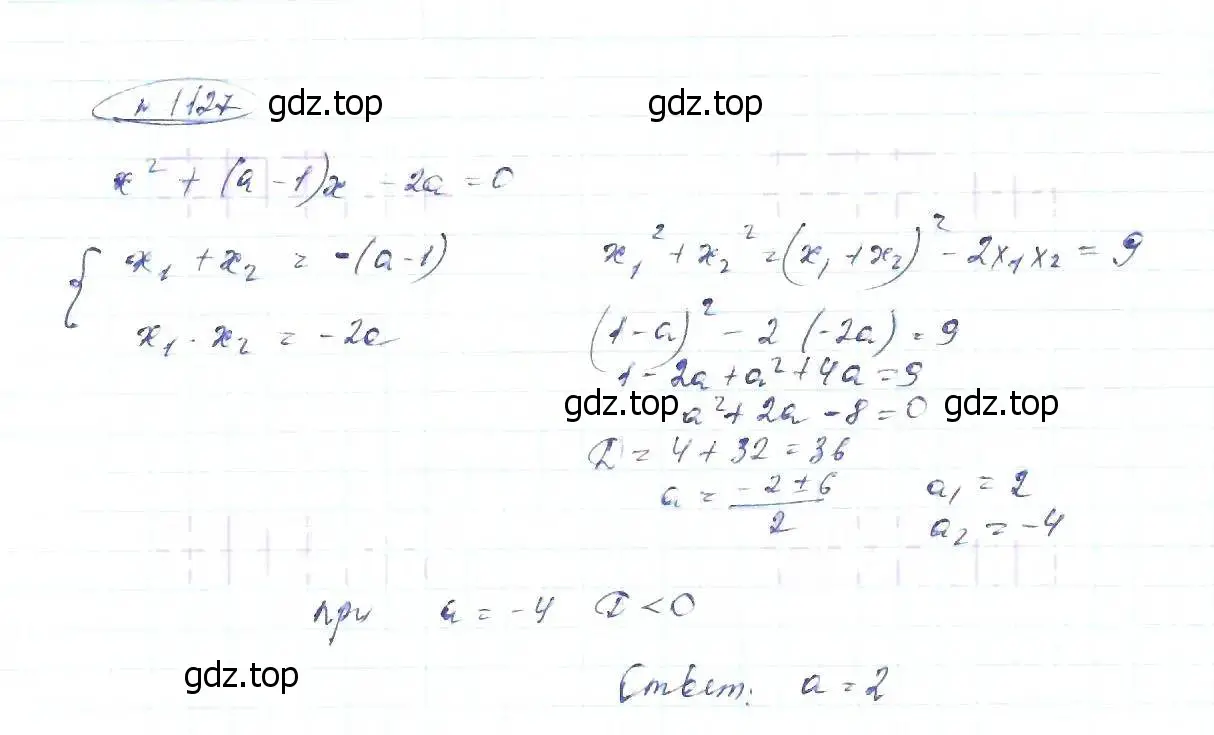 № 1127 gdz.top gdz.top
x² + (a - 1)x - 2a = 0
{ x₁ + x₂ = -(a-1)
x₁ · x₂ = -2a
x₁² + x₂² = (x₁ + x₂)² - 2x₁x₂ = 9
(1-a)² - 2 (-2a) = 9
1 - 2a + a² + 4a = 9
gdz.top a² + 2a - 8 = 0 gdz.top
D = 4 + 32 = 36
a = (-2 ± 6)/2 a₁ = 2
a₂ = -4
при a = -4 D < 0
gdz.top
Ответ: a = 2